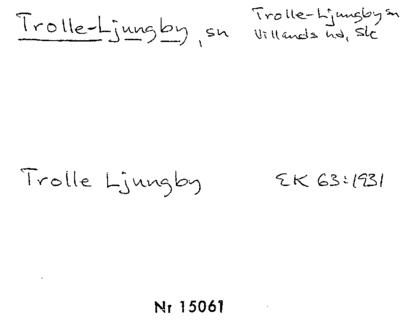 Trolle-Ljungby, sn
Trolle-Ljungby sn
Villands hd, Sk
Trolle Ljungby
EK 63:1931
Nr 15061